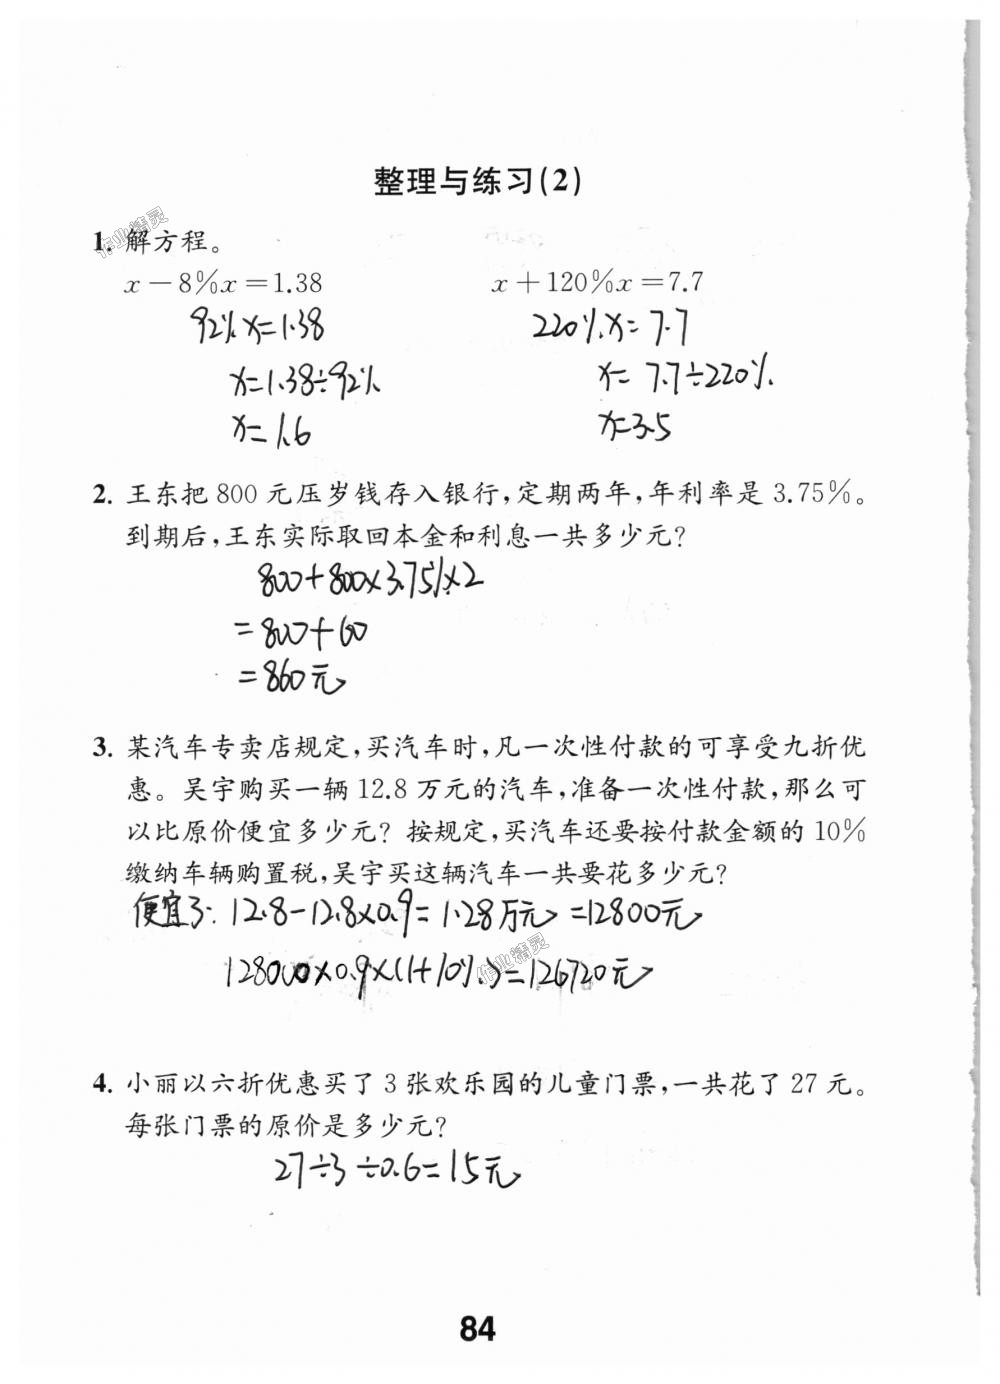 整理与练习(2)
1. 解方程。
x－8%x＝1.38 x＋120%x＝7.7
92%x=1.38 220%x=7.7
x=1.38÷92% x=7.7÷220%
x=1.6 x=3.5
2. 王东把 800 元压岁钱存入银行，定期两年，年利率是 3.75%。
到期后，王东实际取回本金和利息一共多少元？
800+800×3.75%×2
=800+60
=860元
3. 某汽车专卖店规定，买汽车时，凡一次性付款的可享受九折优
惠。吴宇购买一辆 12.8 万元的汽车，准备一次性付款，那么可
以比原价便宜多少元？按规定，买汽车还要按付款金额的 10%
缴纳车辆购置税，吴宇买这辆汽车一共要花多少元？
便宜了：12.8-12.8×0.9=1.28万元=12800元
作业精灵
128000×0.9×(1+10%)=126720元
4. 小丽以六折优惠买了 3 张欢乐园的儿童门票，一共花了 27 元。
每张门票的原价是多少元？
27÷3÷0.6=15元
84
作业精灵